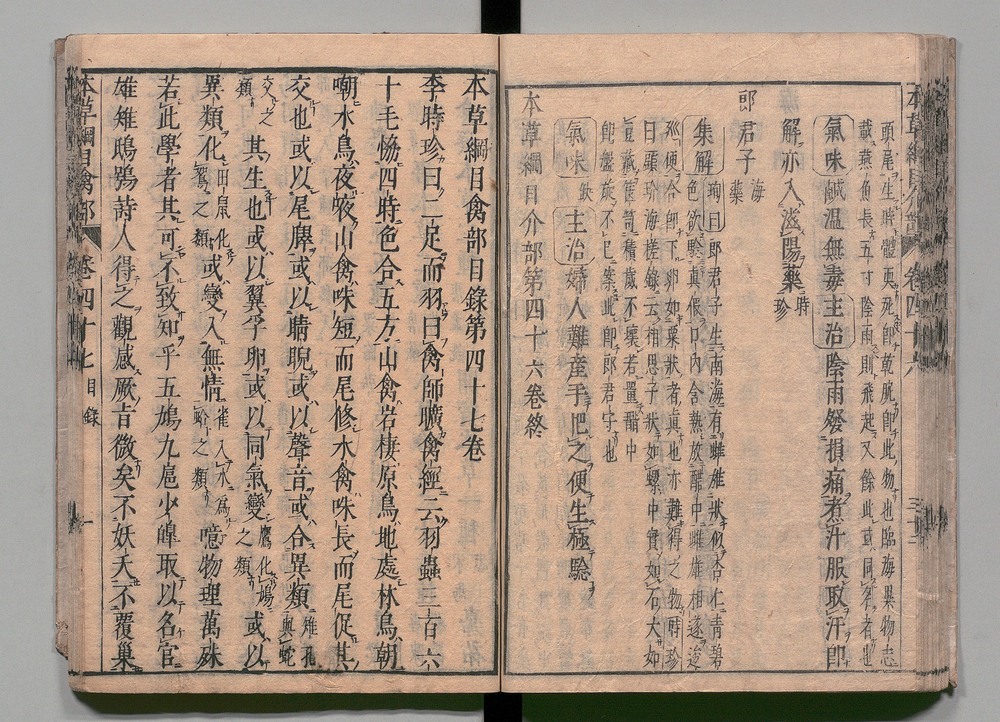 本草綱目介部 卷四十六 三十二
頭尾生時體更死即乾脆即此物也臨海異物志
載燕魚長五寸陰雨則飛起又餘此或同名者也
氣味鹹温無毒主治陰雨發損痛煮汁服取汗即
解亦入滋陽藥時珍
郎君子海藥
集解珣曰郎君子生南海有雌雄狀似杏仁青碧
色欲驗真假口內含熱放醋中雌雄相逐逡
巡便合即下卵如粟狀者真也亦難得之物時珍
曰顧玠海槎錄云相思子狀如螺中實如石大如
豆藏篋笥積歲不壞若置醋中
即盤旋不已案此即郎君子也
氣味缺主治婦人難産手把之便生極驗
本草綱目介部第四十六卷終
本草綱目禽部目錄第四十七卷
李時珍曰二足而羽曰禽師曠禽經云羽蟲三百六
十毛恊四時色合五方山禽岩棲原鳥地處林鳥朝
嘲水鳥夜㖡山禽咮短而尾修水禽咮長而尾促其
交也或以尾臎或以睛睨或以聲音或合異類雉孔與蛇
交之類其生也或以翼孚卵或以同氣變鷹化鳩之類或以
異類化田鼠化鴽之類或變入無情雀入水為蛤之類噫物理萬殊
若此學者其可不致知乎五鳩九扈少皥取以名官
雄雉鴟鴞詩人得之觀感厥旨微矣不妖夭不覆巢
本草綱目禽部 卷四十七目錄 一